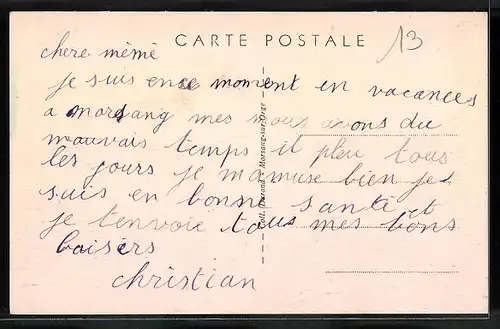 CARTE POSTALE
13
chere mémé
je suis ence moment en vacances
a morsang mes nous avons du
mauvais temps il pleu tous
les jours je mamuse bien je
suis en bonne santé et
je tenvoie tous mes bons
baisers
christian
Coll. Durand, Morsang-sur-Orge